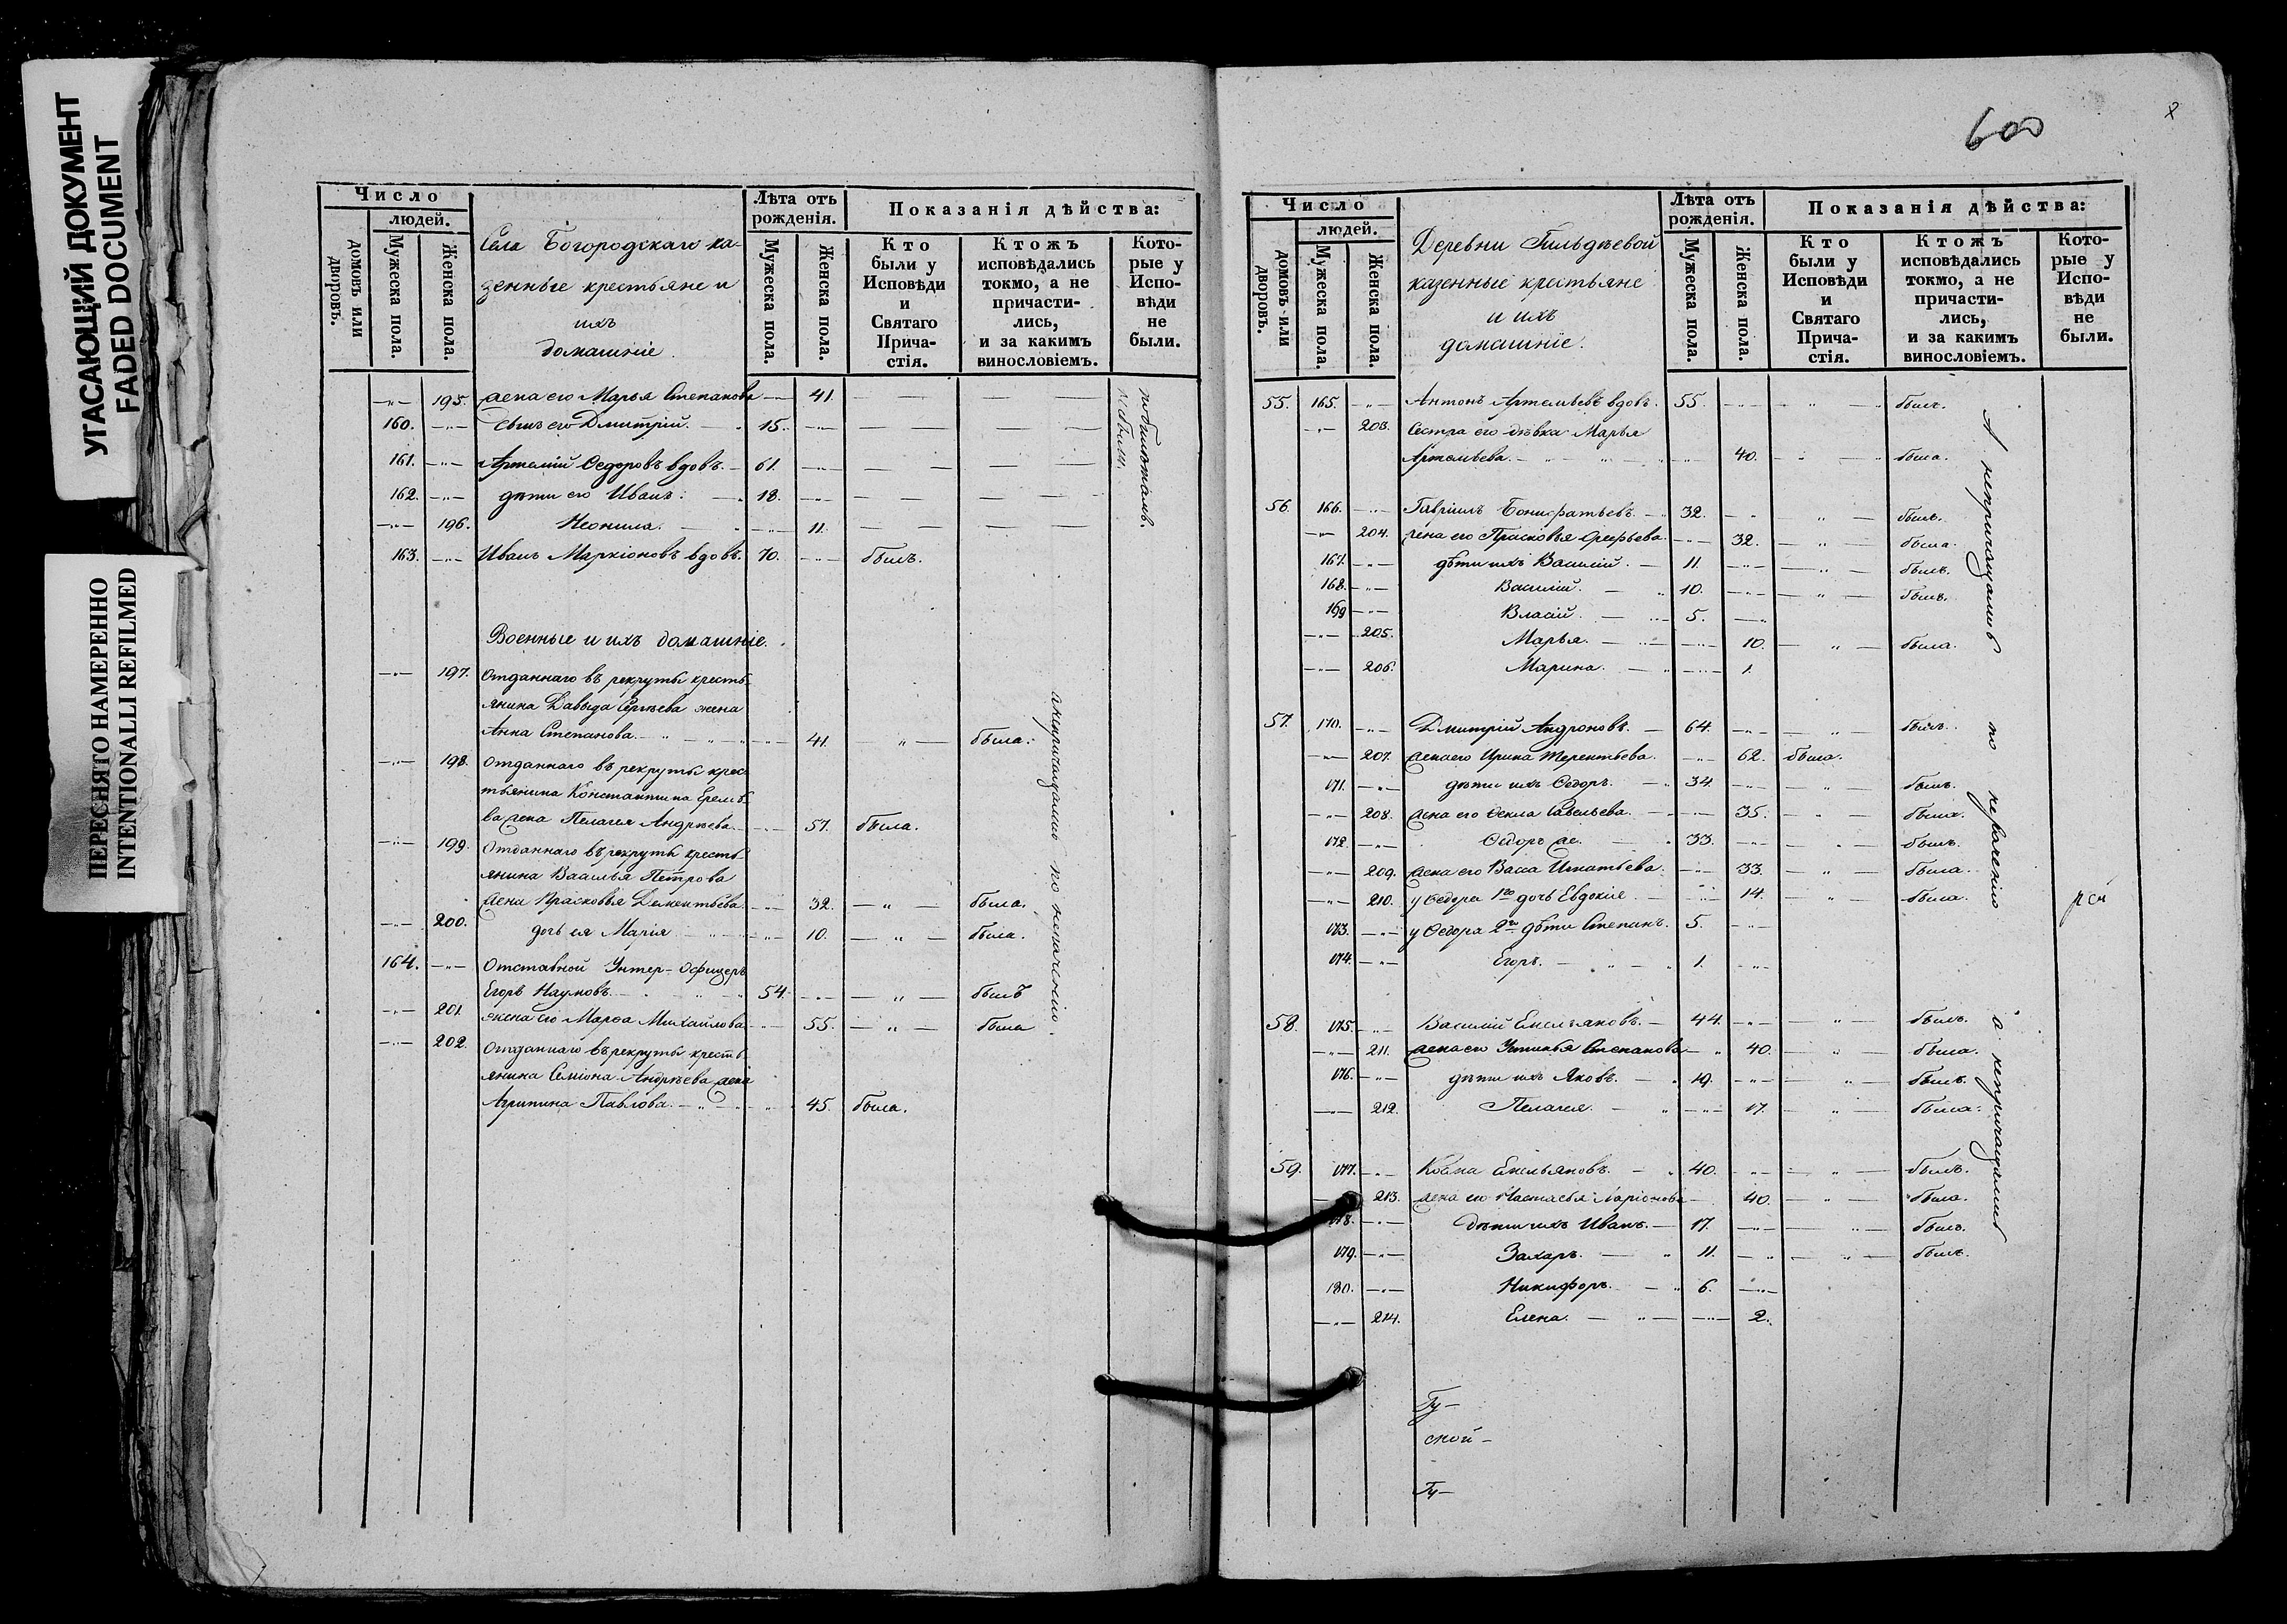 УГАСАЮЩИЙ ДОКУМЕНТ
FADED DOCUMENT
ПЕРЕСНЯТО НАМЕРЕННО
INTENTIONALLI REFILMED
Число
людей.
домовъ или дворовъ.
Мужеска пола.
Женска пола.
Села Богородскаго ка-
зенные крестьяне и
ихъ
домашніе.
Лѣта отъ
рожденія.
Мужеска пола.
Женска пола.
Показанія дѣйства:
Кто
были у
Исповѣди
и
Святаго
Прича-
стія.
Ктожъ
исповѣдались
токмо, а не
причасти-
лись,
и за какимъ
винословіемъ.
Кото-
рые у
Испо-
вѣди
не
были.
195. жена его Марья Степанова 41.
160. сынъ его Дмитрій. 15.
161. Артемій Ѳедоровъ вдовъ. 61.
162. дѣти его Иванъ. 18.
196. Неонила. 11.
163. Иванъ Маркіоновъ вдовъ. 70. былъ.
не были.
Военные и ихъ домашніе.
197. Отданнаго въ рекруты кресть-
янина Давыда Сергѣева жена
Анна Степанова. 41. была.
198. Отданнаго въ рекруты крес-
тьянина Константина Ереме-
ва жена Пелагея Андрѣева. 57. была.
199. Отданнаго въ рекруты кресть-
янина Василья Петрова
жена Прасковья Дементьева. 32. была.
200. дочь ея Марія 10. была.
164. Отставной Унтер-Офицеръ
Егоръ Наумовъ. 54. былъ
201. жена его Марѳа Михайлова 55. была
202. Отданнаго въ рекруты кресть-
янина Семіона Андрѣева жена
Агрипина Павлова. 45. была.
600
8
Число
людей.
домовъ или дворовъ.
Мужеска пола.
Женска пола.
Деревни Гильдѣевой
казенные крестьяне
и ихъ
домашніе.
Лѣта отъ
рожденія.
Мужеска пола.
Женска пола.
Показанія дѣйства:
Кто
были у
Исповѣди
и
Святаго
Прича-
стія.
Ктожъ
исповѣдались
токмо, а не
причасти-
лись,
и за какимъ
винословіемъ.
Кото-
рые у
Испо-
вѣди
не
были.
55. 165. Антонъ Артемьевъ вдовъ. 55. былъ.
203. Сестра его дѣвка Марья
Артемьева. 40. была.
56. 166. Гавріилъ Бонифатьевъ. 32. былъ.
204. жена его Прасковья Ерефьева. 32. была.
167. дѣти ихъ Василій. 11. былъ.
168. Василій. 10. былъ.
169 Власій. 5.
205. Марья. 10. была.
206. Марина. 1.
57. 170. Дмитрій Андроновъ. 64. былъ.
207. жена его Ирина Терентьева. 62. была.
171. дѣти ихъ Ѳедоръ. 34. былъ.
208. жена его Ѳекла Савельева. 35. была.
172. Ѳедоръ же. 33. былъ.
209. жена его Васса Игнатьева. 33. была.
210. у Ѳедора 1го дочь Евдокія 14. была.
173. у Ѳедора 2го дѣти Степанъ. 5.
174. Егоръ. 1.
58. 175. Василій Емельяновъ. 44. былъ.
211. жена его Устинья Степанова 40. была.
176. дѣти ихъ Яковъ. 19. былъ.
212. Пелагея. 17. была.
59. 177. Косма Емельяновъ. 40. былъ.
213. жена его Настасья Ларіонова 40. была.
178. дѣти ихъ Иванъ. 17. былъ.
179. Захаръ. 11. былъ.
180. Никифоръ. 6.
214. Елена. 2.
Гу-
ской-
Гу-